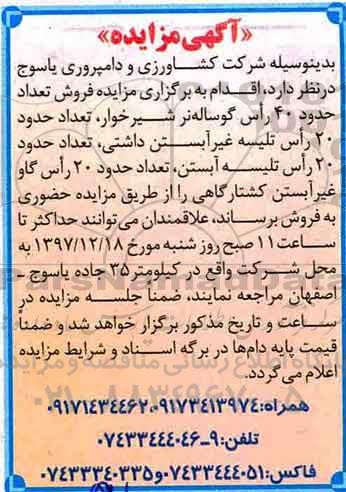 «آگهی مزایده»
بدینوسیله شرکت کشـاورزی و دامپروری یاسوج
درنظر دارد، اقـدام به برگزاری مزایده فروش تعداد
حدود ۴۰ رأس گوساله‌نر شـیرخوار، تعداد حدود
۲۰ رأس تلیسه غیرآبسـتن داشتی، تعداد حدود
۲۰ رأس تلیسـه آبستن، تعداد حدود ۲۰ رأس گاو
غیرآبستن کشتارگاهی را از طریق مزایده حضوری
به فروش برساند، علاقمندان می‌توانند حداکثر تا
سـاعت ۱۱ صبح روز شنبه مورخ ۱۳۹۷/۱۲/۱۸ به
محل شـرکت واقع در کیلومتر ۳۵ جاده یاسوج -
اصفهان مراجعه نمایند، ضمناً جلسه مزایده در
سـاعت و تاریخ مذکور برگزار خواهد شد و ضمناً
قیمت پایه دام‌ها در برگه اسـناد و شرایط مزایده
اعلام می‌گردد.
همراه: ۰۹۱۷۳۴۱۳۹۷۴، ۰۹۱۷۱۴۳۴۴۶۲
تلفن: ۹-۰۷۴۳۳۴۴۴۰۴۶
فاکس: ۰۷۴۳۳۴۴۴۰۵۱ و ۰۷۴۳۳۳۴۰۳۳۵